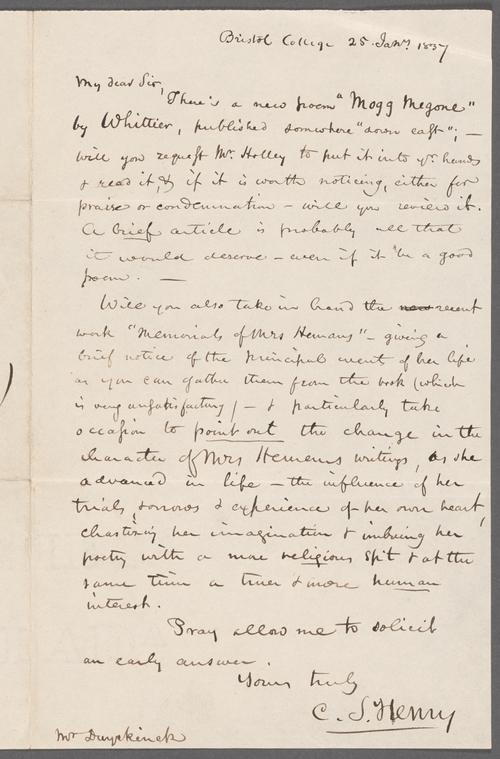 Bristol College 25 Jany. 1837
My dear Sir,
There is a new poem "Mogg Megone"
by Whittier, published somewhere "down east"; —
will you request Mr. Holley to put it into yr. hands
& read it, & if it is worth noticing, either for
praise or condemnation — will you review it.
A brief article is probably all that
it would deserve — even if it be a good
poem. —
Will you also take in hand the new recent
work "Memorials of Mrs Hemans" — giving a
brief notice of the principal event of her life
as you can gather them from the book (which
is very unsatisfactory) — & particularly take
occasion to point out the change in the
character of Mrs Hemans writings, as she
advanced in life — the influence of her
trials, sorrows & experience of her own heart,
chastising her imagination & imbuing her
poetry with a more religious spt & at the
same time a truer & more human
interest.
Pray allow me to solicit
an early answer.
Yours truly
C. S. Henry
Mr Duyckinck